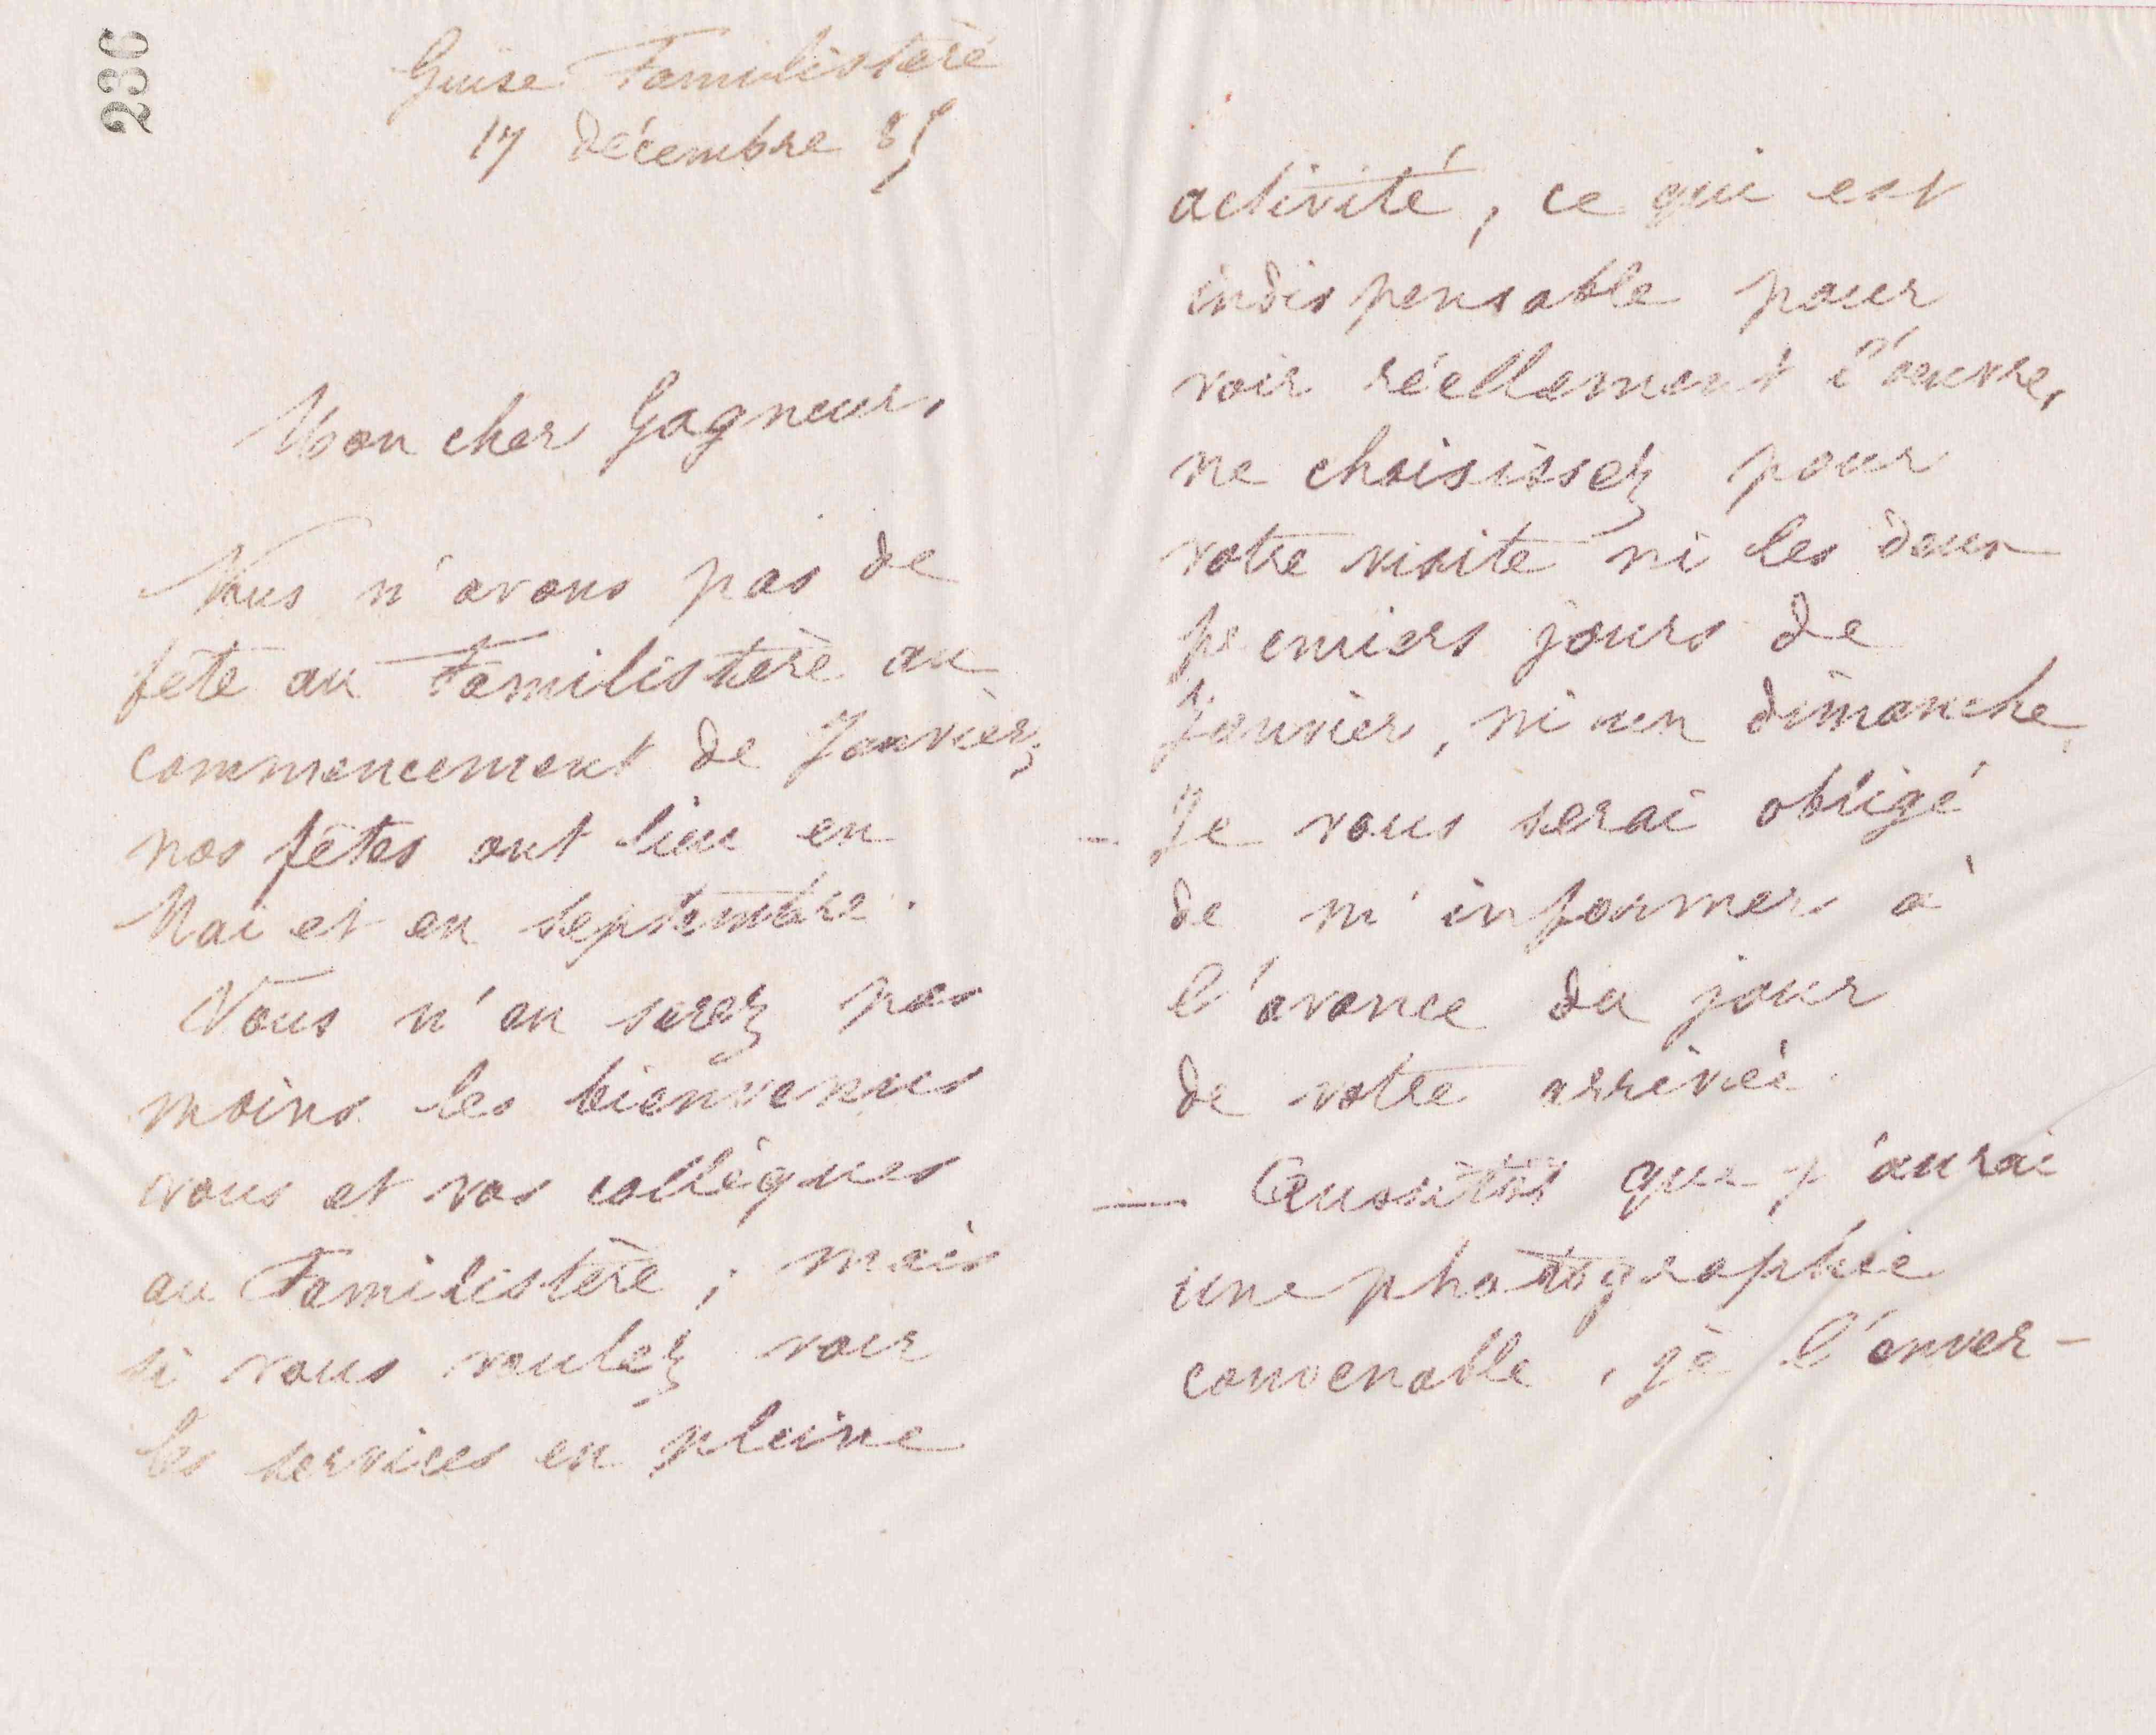 236
Guise Familistère
17 décembre 85
Mon cher Gagneur,
Nous n'avons pas de
fête au Familistère au
commencement de Janvier;
nos fêtes ont lieu en
Mai et en septembre.
Vous n'en serez pas
moins les bienvenus
vous et vos collègues
au Familistère; mais
si vous voulez voir
les services en pleine
activité, ce qui est
indispensable pour
voir réellement l'œuvre,
ne choisissez pour
votre visite ni les deux
premiers jours de
Janvier, ni un dimanche.
- Je vous serai obligé
de m'informer à
l'avance du jour
de votre arrivée.
- Aussitôt que j'aurai
une photographie
convenable, je l'enver-